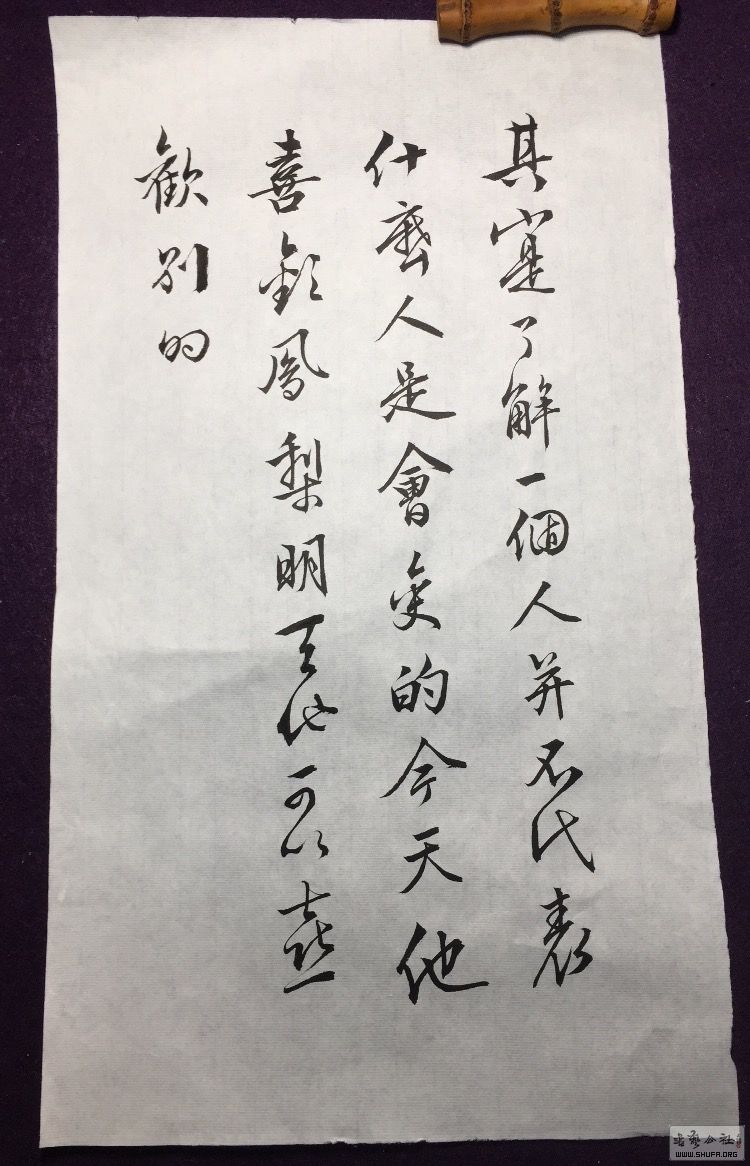 其實了解一個人并不代表
什麼人是會變的今天他
喜歡鳳梨明天他可以喜
歡別的
书艺公社
WWW.SHUFA.ORG